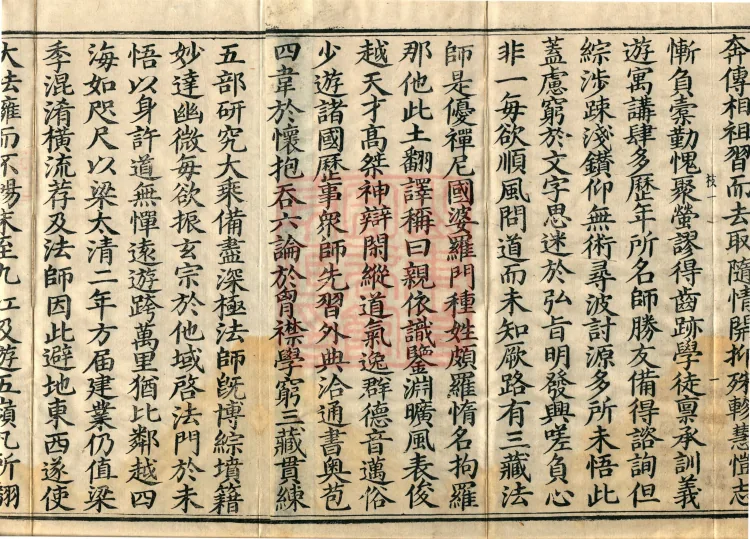 奔傳相祖習而去取隨情開抑殊軫慧愷志
慚負槖勤愧聚螢謬得齒跡學徒禀承訓義
遊寓講肆多歷年所名師勝友備得諮詢但
綜涉踈淺鑚仰無術尋波討源多所未悟此
蓋慮窮於文字思迷於弘旨明發興嗟負心
非一每欲順風問道而未知厥路有三藏法
師是優禪尼國婆羅門種姓頗羅惰名拘羅
那他此土翻譯稱曰親依識鑒淵曠風表俊
越天才高桀神辯閑縱道氣逸群德音邁俗
少遊諸國歷事衆師先習外典洽通書奧苞
四韋於懷抱吞六論於胷襟學窮三藏貫練
五部研究大乘備盡深極法師旣博綜墳籍
妙達幽微每欲振玄宗於他域啓法門於未
悟以身許道無憚遠遊跨萬里猶比鄰越四
海如咫尺以梁太清二年方届建業仍值梁
季混淆橫流荐及法師因此避地東西遂使
大法擁而不暢末至九江及遊五嶺凡所翻